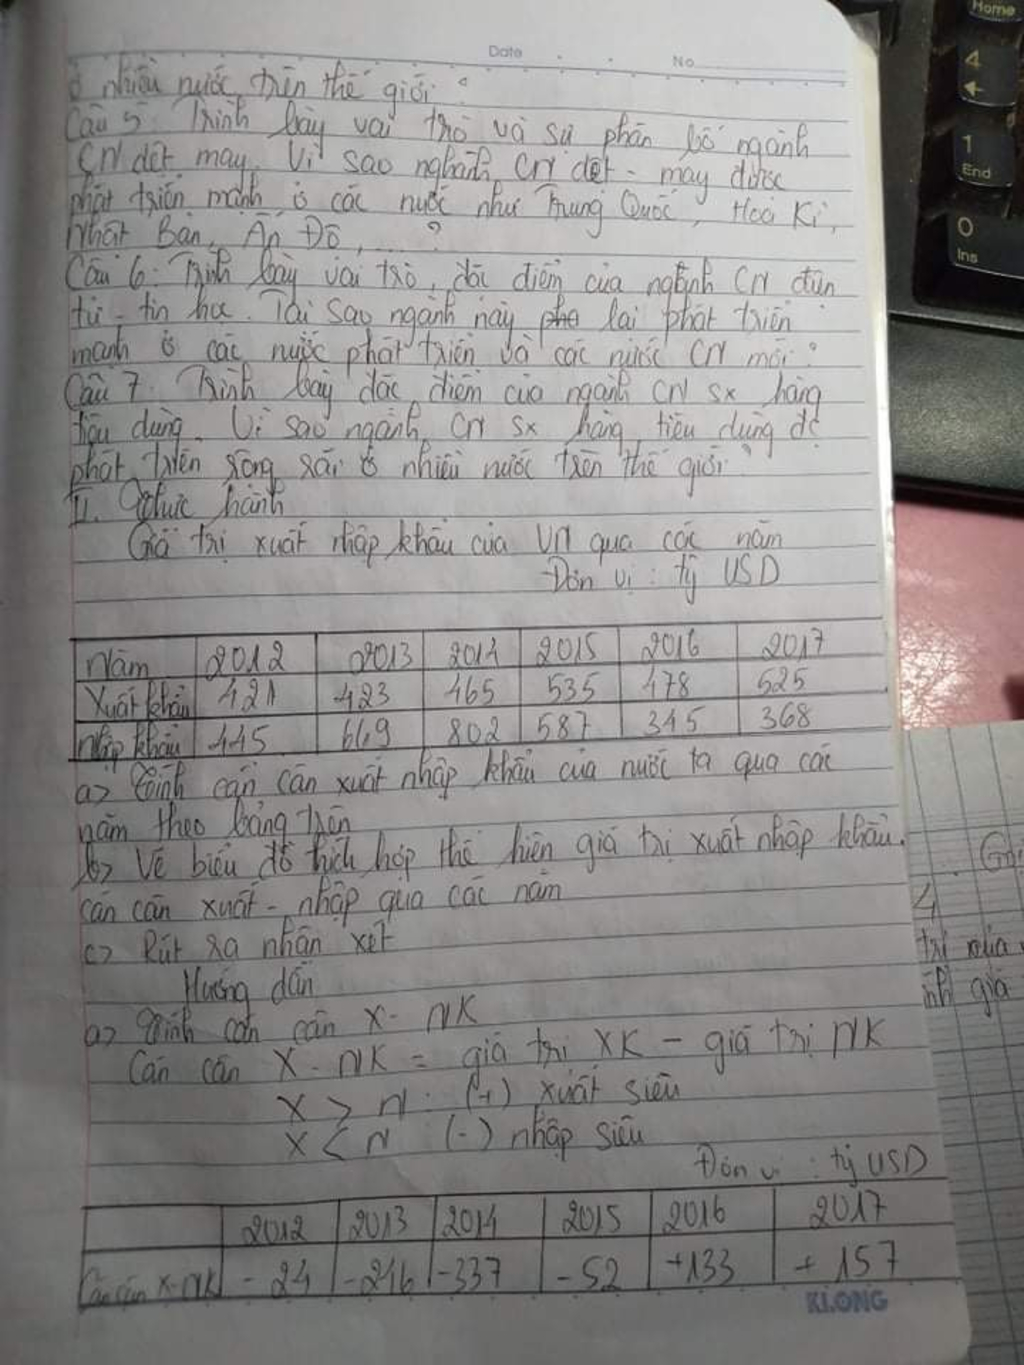 Date No
ở nhiều nước trên thế giới?
Câu 5. Trình bày vai trò và sự phân bố ngành
CN dệt may. Vì sao nghành CN dệt - may được
phát triển mạnh ở các nước như Trung Quốc, Hoa Kì,
Nhật Bản, Ấn Độ, ... ?
Câu 6: Trình bày vai trò, đặc điểm của ngành CN điện
tử - tin học. Tại sao ngành này lại phát triển
mạnh ở các nước phát triển và các nước CN mới?
Câu 7. Trình bày đặc điểm của ngành CN sx hàng
tiêu dùng. Vì sao ngành CN sx hàng tiêu dùng đc
phát triển rộng rãi ở nhiều nước trên thế giới?
II. Thực hành
Giá trị xuất nhập khẩu của VN qua các năm
Đơn vị : tỷ USD
Năm 2012 2013 2014 2015 2016 2017
Xuất khẩu 421 423 465 535 478 525
Nhập khẩu 445 669 802 587 345 368
a> Tính cán cân xuất nhập khẩu của nước ta qua các
năm theo bảng trên
b> Vẽ biểu đồ thích hợp thể hiện giá trị xuất nhập khẩu.
cán cân xuất - nhập qua các năm
c> Rút ra nhận xét
Hướng dẫn
a> Tính cán cân X - NK
Cán cân X - NK = giá trị XK - giá trị NK
X > N : (+) xuất siêu
X < N (-) nhập siêu
Đơn vị : tỷ USD
2012 2013 2014 2015 2016 2017
Cán cân X-NK - 24 -246 -337 -52 +133 + 157
KLONG
Home
4
1
End
0
Ins
4
trị của
giá